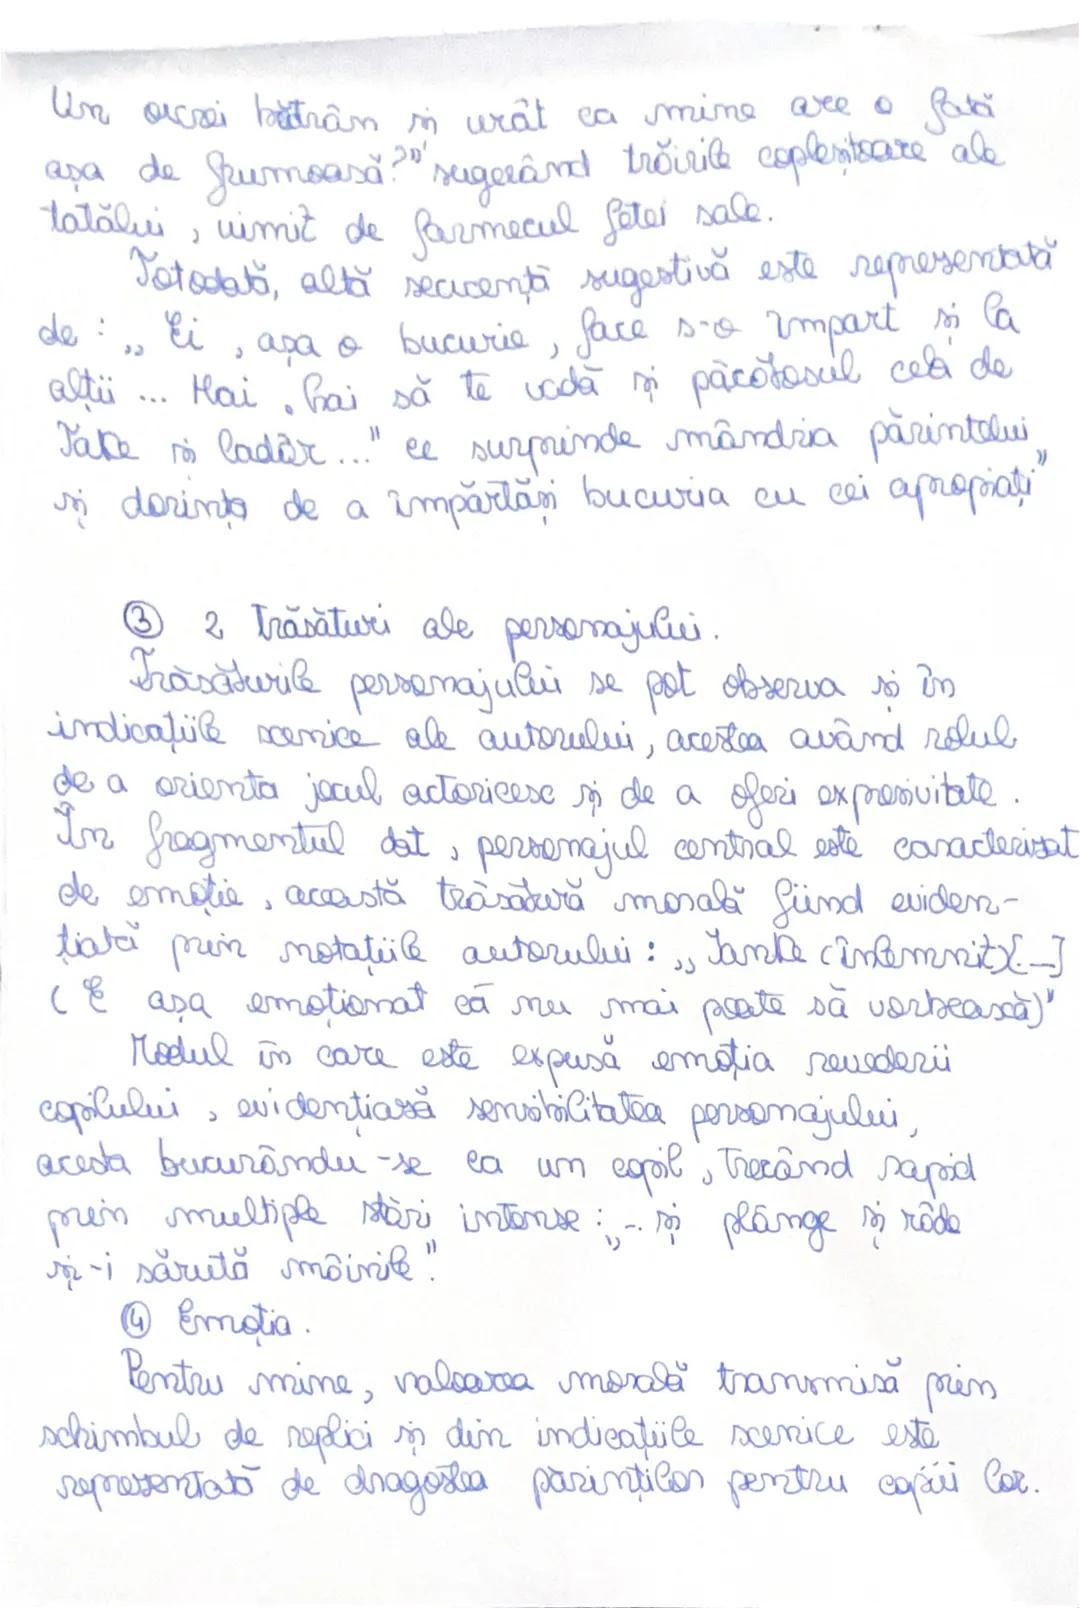 Un orcăi bătrân și urât ca mine are o fată
așa de frumoasă?" sugerând trăirile copleșitoare ale
tatălui, uimit de farmecul fetei sale.
Totodată, altă secvență sugestivă este reprezentată
de: „Ei, așa o bucurie, face s-o împart și la
alții... Hai, hai să te vadă și păcătosul cela de
Take și ladăr..." ce surprinde mândria părintelui
și dorința de a împărtăși bucuria cu cei apropiați"
③ 2 Trăsături ale personajului.
Trăsăturile personajului se pot observa și în
indicațiile scenice ale autorului, acestea având rolul
de a orienta jocul actoricesc și de a oferi expresivitate.
În fragmentul dat, personajul central este caracterizat
de emoție, această trăsătură morală fiind eviden-
țiată prin notațiile autorului: „Ianke (înlemnit)[...]
(E așa emoționat că nu mai poate să vorbească)"
Modul în care este expusă emoția revederii
copilului, evidențiază sensibilitatea personajului,
acesta bucurându-se ca un copil, trecând rapid
prin multiple stări intense: „.. și plânge și râde
și-i sărută mâinile".
④ Emoția.
Pentru mine, valoarea morală transmisă prin
schimbul de replici și din indicațiile scenice este
reprezentată de dragostea părinților pentru copiii lor.